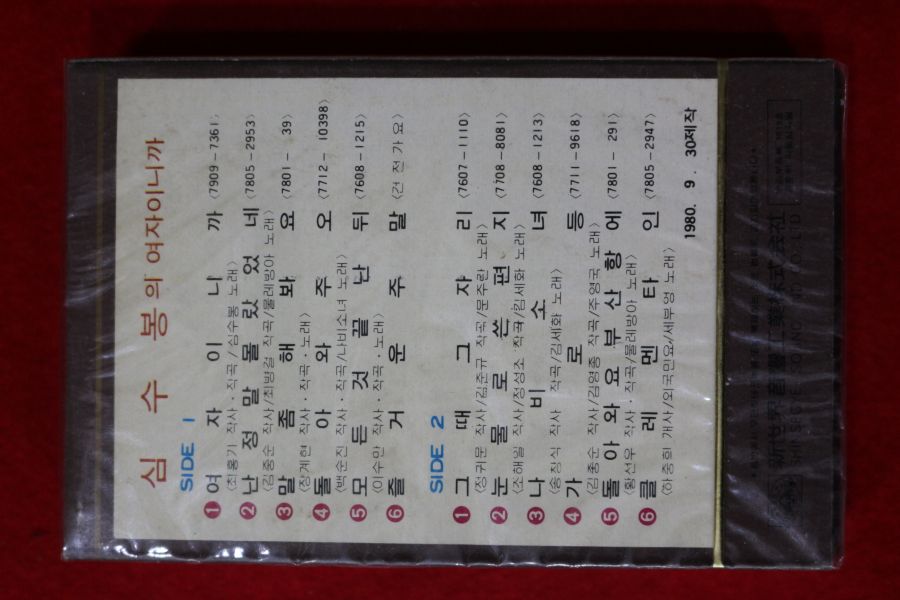 심수봉의 여자이니까
SIDE 1
1 여자이니까 〈7909-7361〉
〈최홍기 작사·작곡/심수봉 노래〉
2 난정말몰랐었네 〈7805-2953〉
〈김중순 작사/최병걸 작곡/물레방아 노래〉
3 말좀해봐요 〈7801- 39〉
〈장계현 작사·작곡·노래〉
4 돌아와주오 〈7712-10398〉
〈백순진 작사·작곡/나비소녀 노래〉
5 모든것끝난뒤 〈7608-1215〉
〈이수만 작사·작곡·노래〉
6 즐거운주말 〈건전가요〉
SIDE 2
1 그때그자리 〈7607-1110〉
〈정귀문 작사/김준규 작곡/문주란 노래〉
2 눈물로쓴편지 〈7708-8081〉
〈조해일 작사/정성조 작곡/김세화 노래〉
3 나비소녀 〈7608-1213〉
〈송창식 작사 작곡/김세화 노래〉
4 가로등 〈7711-9618〉
〈김중순 작사/김영종 작곡/주영국 노래〉
5 돌아와요부산항에 〈7801- 291〉
〈황선우 작사·작곡/물레방아 노래〉
6 클레멘타인 〈7805-2947〉
〈하중희 개사/외국민요/세부엉 노래〉
1980. 9. 30제작